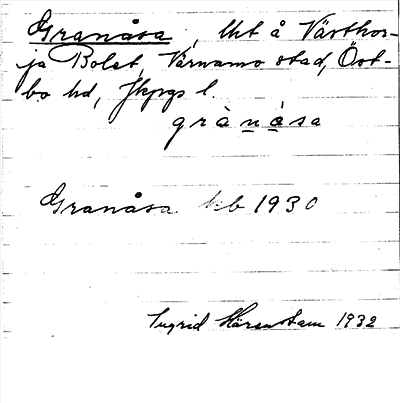 Granåsa, lht å Västhor-
ja Bolet, Värnamo stad, Öst-
bo hd, Jkpgs l.
grànàsa
Granåsa hb 1930
Ingrid 1932